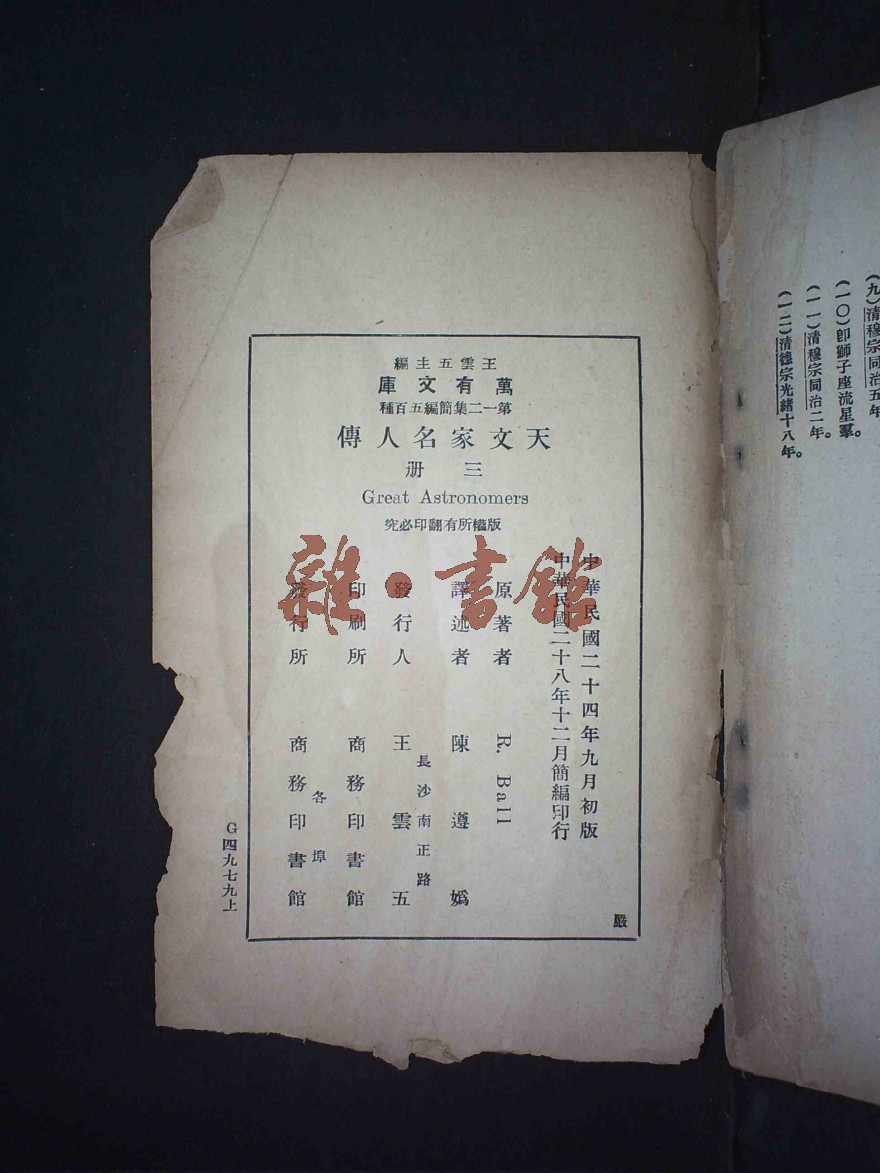 王雲五主編
萬有文庫
第一二集簡編五百種
天文家名人傳
三册
Great Astronomers
版權所有翻印必究
中華民國二十四年九月初版
中華民國二十八年十二月簡編印行
原著者 R. Ball
譯述者 陳遵嬀
發行人 王雲五
長沙南正路
印刷所 商務印書館
發行所 商務印書館
各埠
嚴
G四九七九上
(九)清穆宗同治五年
(一〇)卽獅子座流星羣。
(一一)清穆宗同治二年。
(一二)清德宗光緒十八年。
雜·書館